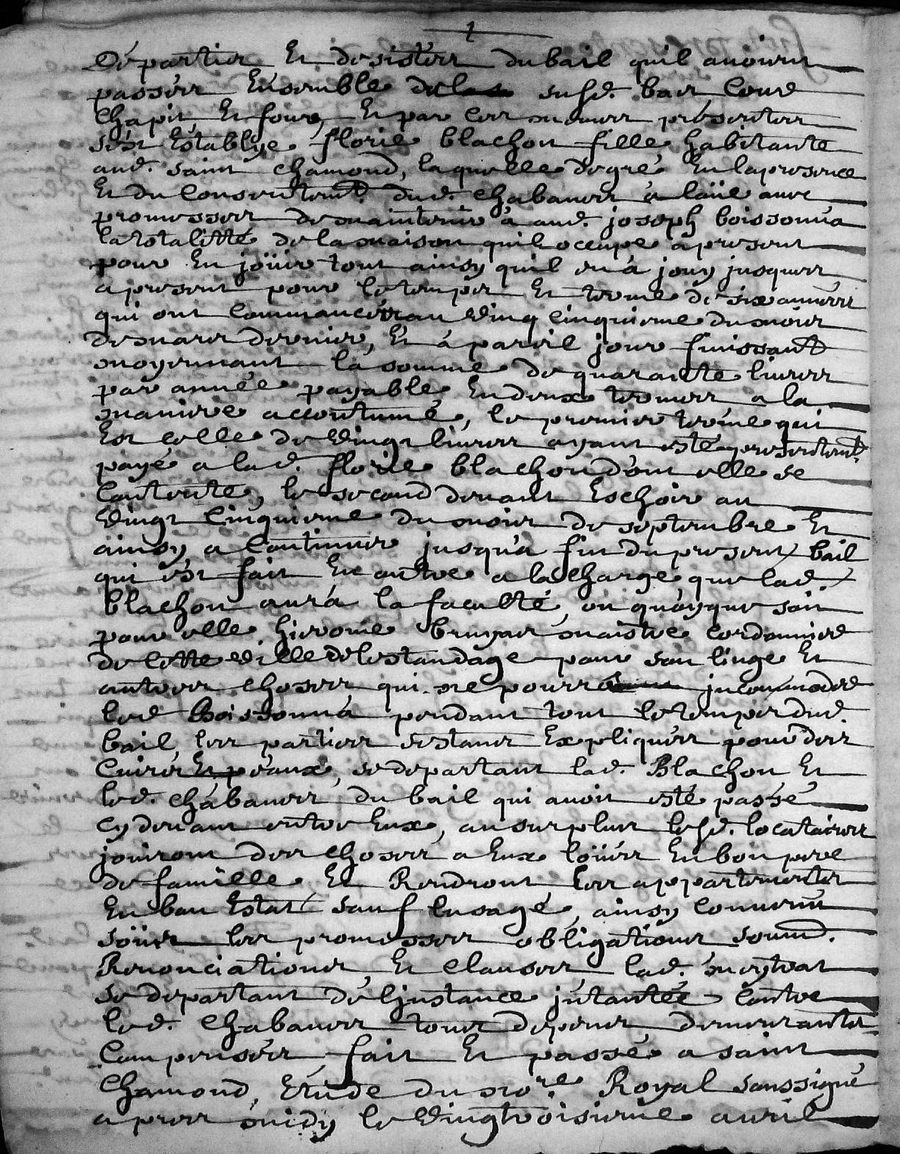 départir Et desister du bail quil avoient
passés Ensemble susd. bas Cour
Chapit Et four, Et par ces mesmes présentes
s'est Establye florie blachon fille habitante
aud. saint chamond, laquelle de gré En la presence
Et du Consentemt. dud. Chabanes a laüé avec
promesses de maintenir a aud. joseph boissonna
la totalitté de la maison quil occupe a present
pour En joüir tout ainsy quil en a jouy jusques
a present pour le temps Et terme de six années
qui ont Commancé au Vingt Cinquieme du mois
de mars dernier, Et a pareil jour finissant
moyennant la somme de quarante livres
par année payable En deux termes a la
maniere accoutumé, le premier terme qui
Est celle de Vingt livres ayant esté presentemt.
payé a lad. florie blachon dont elle se
Contente, le second devant Eschoir au
Vingt Cinquieme du mois de septembre Et
ainsy a Continuer jusqu'a fin du present bail
qui est fait En outre a la charge que lad.
blachon aura la faculté, ou quoyque soit
pour elle hierome bruyas maistre Cordonnier
de Cette Ville de lestandage pour son linge Et
autres choses qui ne pourra jncommoder
led. Boissonna pendant tout le temps dud.
bail, les parties sestant Expliqués pour des
Cuirs Et peaux, se departant lad. Blachon Et
led. Chabanes du bail qui avoit esté passé
Cy devant entre Eux, au surplus lesd. locataires
jouiront des choses a Eux loüés En bon pere
de famille Et Rendront les appartements
En bon Estat sauf lusage, ainsy Convenu
soüs les promesses obligations soumd.
Renonciations Et Clauses lad.
se departant de linstance jntantée Contre
led. Chabanes tous depens demeurantes
Compensés fait Et passé a saint
Chamond, Etude du nore. Royal soussigné
apres midy le Vingtroisieme avril